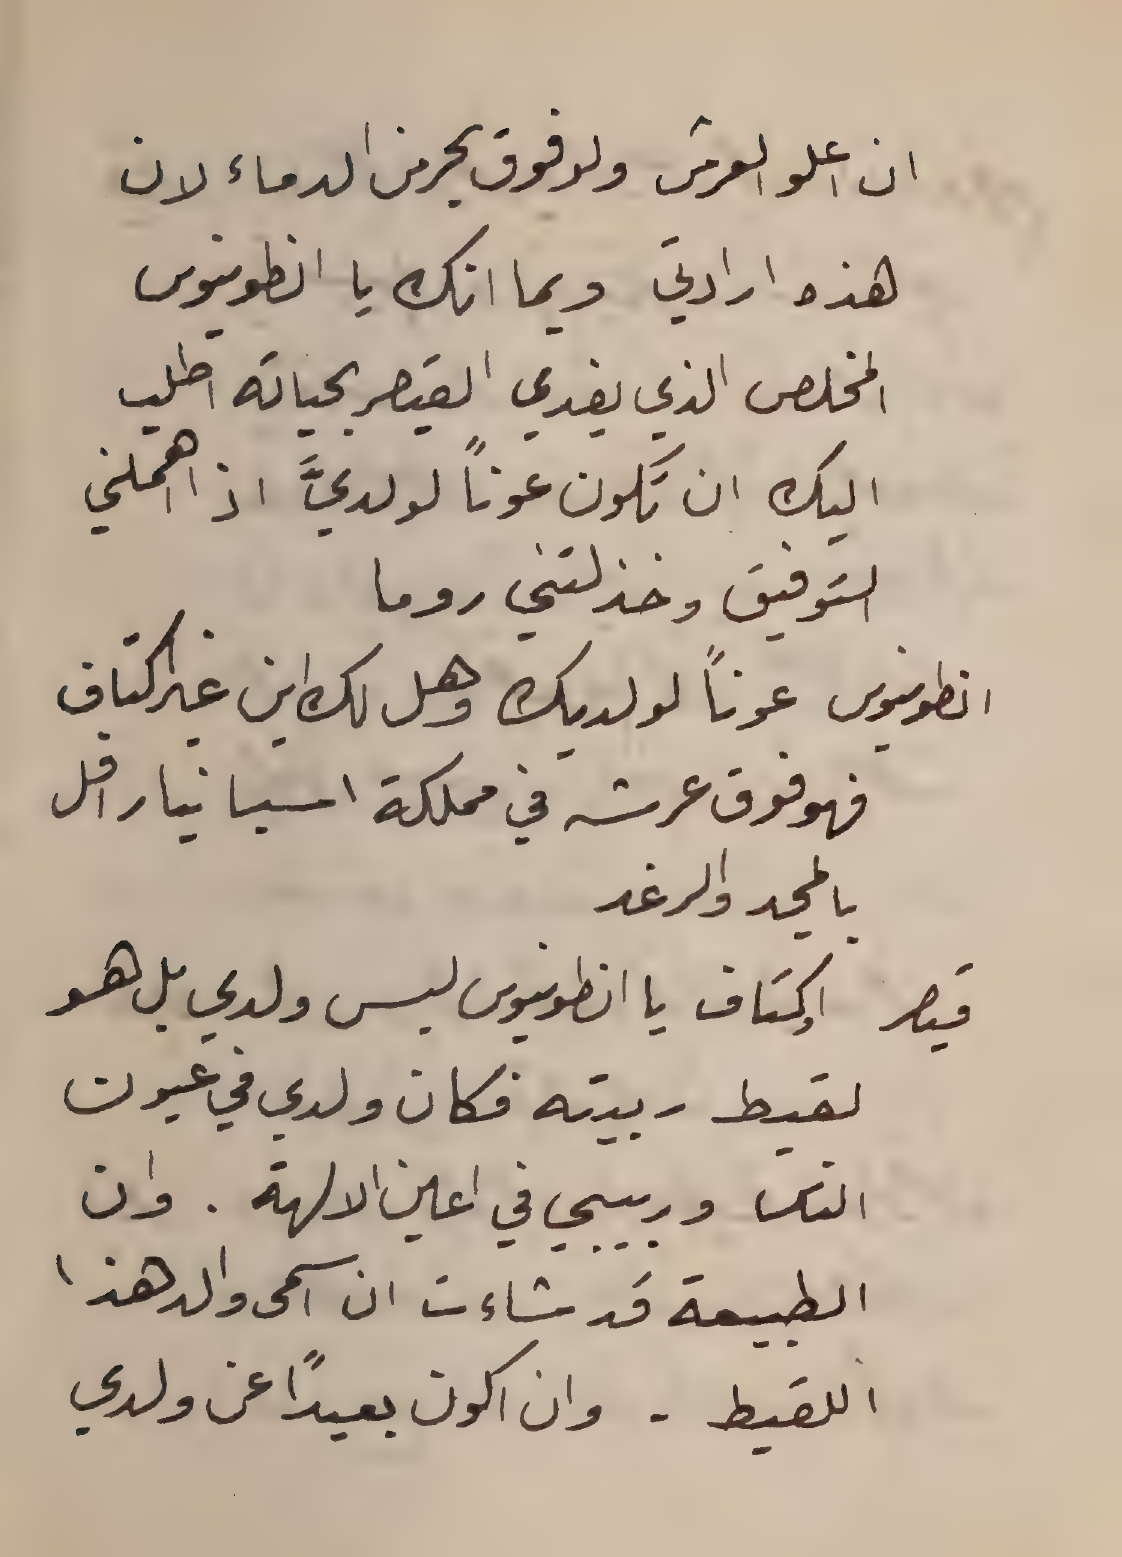 ان اعلو العرش ولو فوق بحر من الدماء لان
هذه ارادتي وبما انك يا انطونيوس
المخلص الذي يفدي القيصر بحياته اطلب
اليك ان تكون عوناً لولديَّ اذا اهملني
التوفيق وخذلتني روما
انطونيوس عوناً لولديك وهل لك ابن غير اكتاف
فهو فوق عرشه في مملكة اسبانيا رافل
بالمجد والرغد
قيصر اوكتاف يا انطونيوس ليس ولدي بل هو
لقيط ربيته فكان ولدي في عيون
الناس وربيبي في اعين الالهة . وان
الطبيعة قد شاءت ان اسمى والد هذا
اللقيط - وان اكون بعيدًا عن ولدي